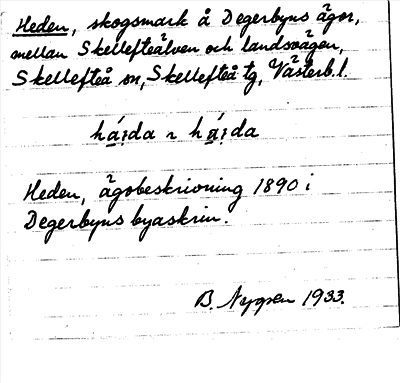 Heden, skogsmark å Degerbyns ägor,
mellan Skellefteälven och landsvägen,
Skellefteå sn, Skellefteå tg, Västerb.l.
há̱i̯da ~ há̱i̯da
Heden, ägobeskrivning 1890 i
Degerbyns byaskrin.
B. Nygren 1933.